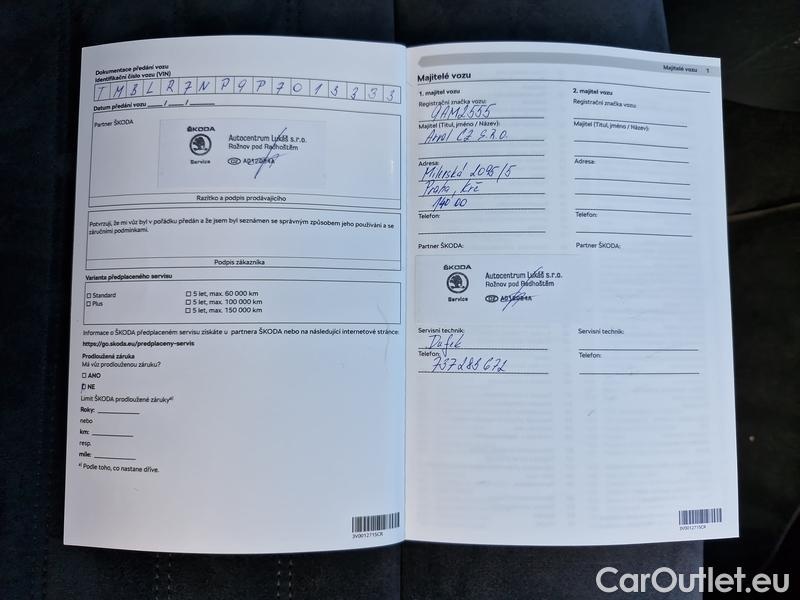 Dokumentace předání vozu
Identifikační číslo vozu (VIN)
TMBLR7NP9P7013333
Datum předání vozu ____ / ____ / ______
Partner ŠKODA
ŠKODA
Service
Autocentrum Lukáš s.r.o.
Rožnov pod Radhoštěm
CZ
Razítko a podpis prodávajícího
Potvrzuji, že mi vůz byl v pořádku předán a že jsem byl seznámen se správným způsobem jeho používání a se
záručními podmínkami.
Podpis zákazníka
Varianta předplaceného servisu
☐ Standard
☐ Plus
☐ 5 let, max. 60 000 km
☐ 5 let, max. 100 000 km
☐ 5 let, max. 150 000 km
Informace o ŠKODA předplaceném servisu získáte u partnera ŠKODA nebo na následující internetové stránce:
https://go.skoda.eu/predplaceny-servis
Prodloužená záruka
Má vůz prodlouženou záruku?
☐ ANO
☐ NE
Limit ŠKODA prodloužené záruky a)
Roky: ________
nebo
km: ________
resp.
míle: ________
a) Podle toho, co nastane dříve.
3V0012715CR
Majitelé vozu 1
Majitelé vozu
1. majitel vozu
Registrační značka vozu:
9AM2555
Majitel (Titul, jméno / Název):
Arval CZ s.r.o.
Adresa:
Milevská 2095/5
Praha, Krč
140 00
Telefon:
Partner ŠKODA:
ŠKODA
Service
Autocentrum Lukáš s.r.o.
Rožnov pod Radhoštěm
CZ
Servisní technik:
Telefon:
737 285 672
2. majitel vozu
Registrační značka vozu:
Majitel (Titul, jméno / Název):
Adresa:
Telefon:
Partner ŠKODA:
Servisní technik:
Telefon:
3V0012715CR
CarOutlet.eu